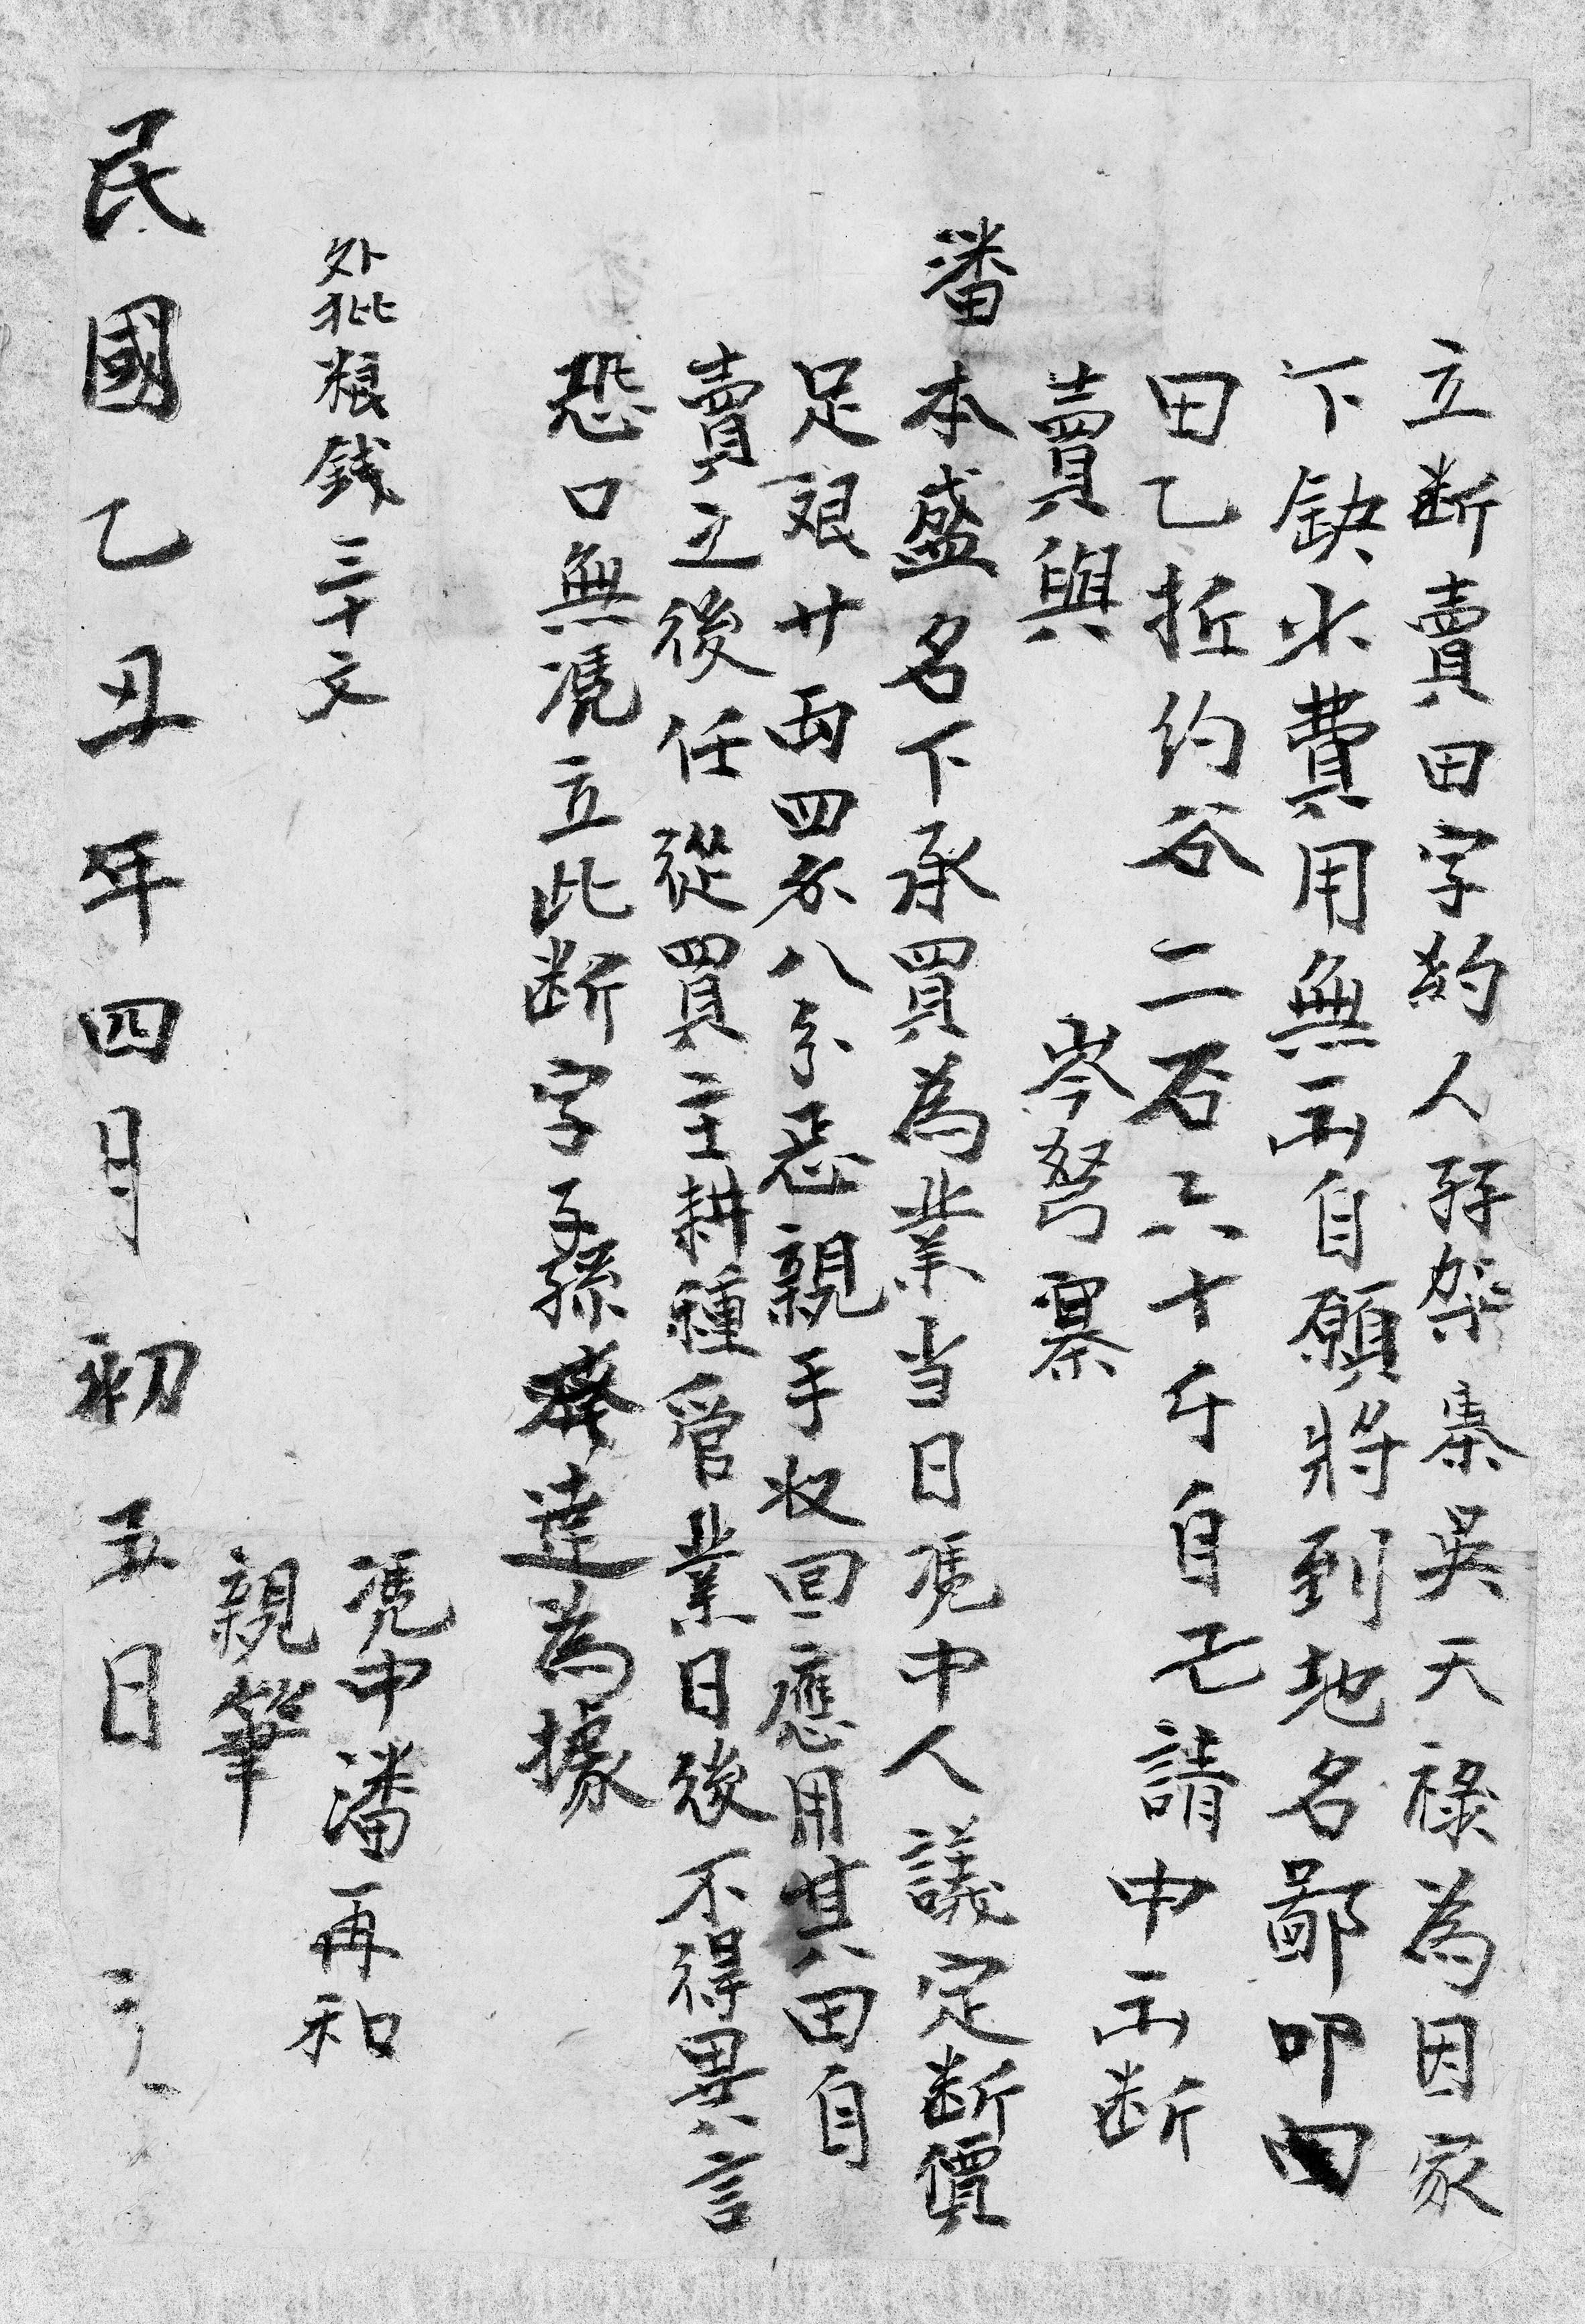 立断賣田字約人孖架寨吳天祿為因家
下缺少費用無出自願將到地名鄙叩田
田乙坵約谷二石六十斤自己請中出断
賣與 岑弩寨
潘本盛名下承買為業当日凴中人議定断價
足艮廿两四分八亇恴親手收回應用其田自
賣立後任從買主耕種管業日後不得異言
恐口無凴立此断字子孫發達為據
外批粮銭三十文
凴中潘再和
親筆
民國乙丑年四月初五日 立